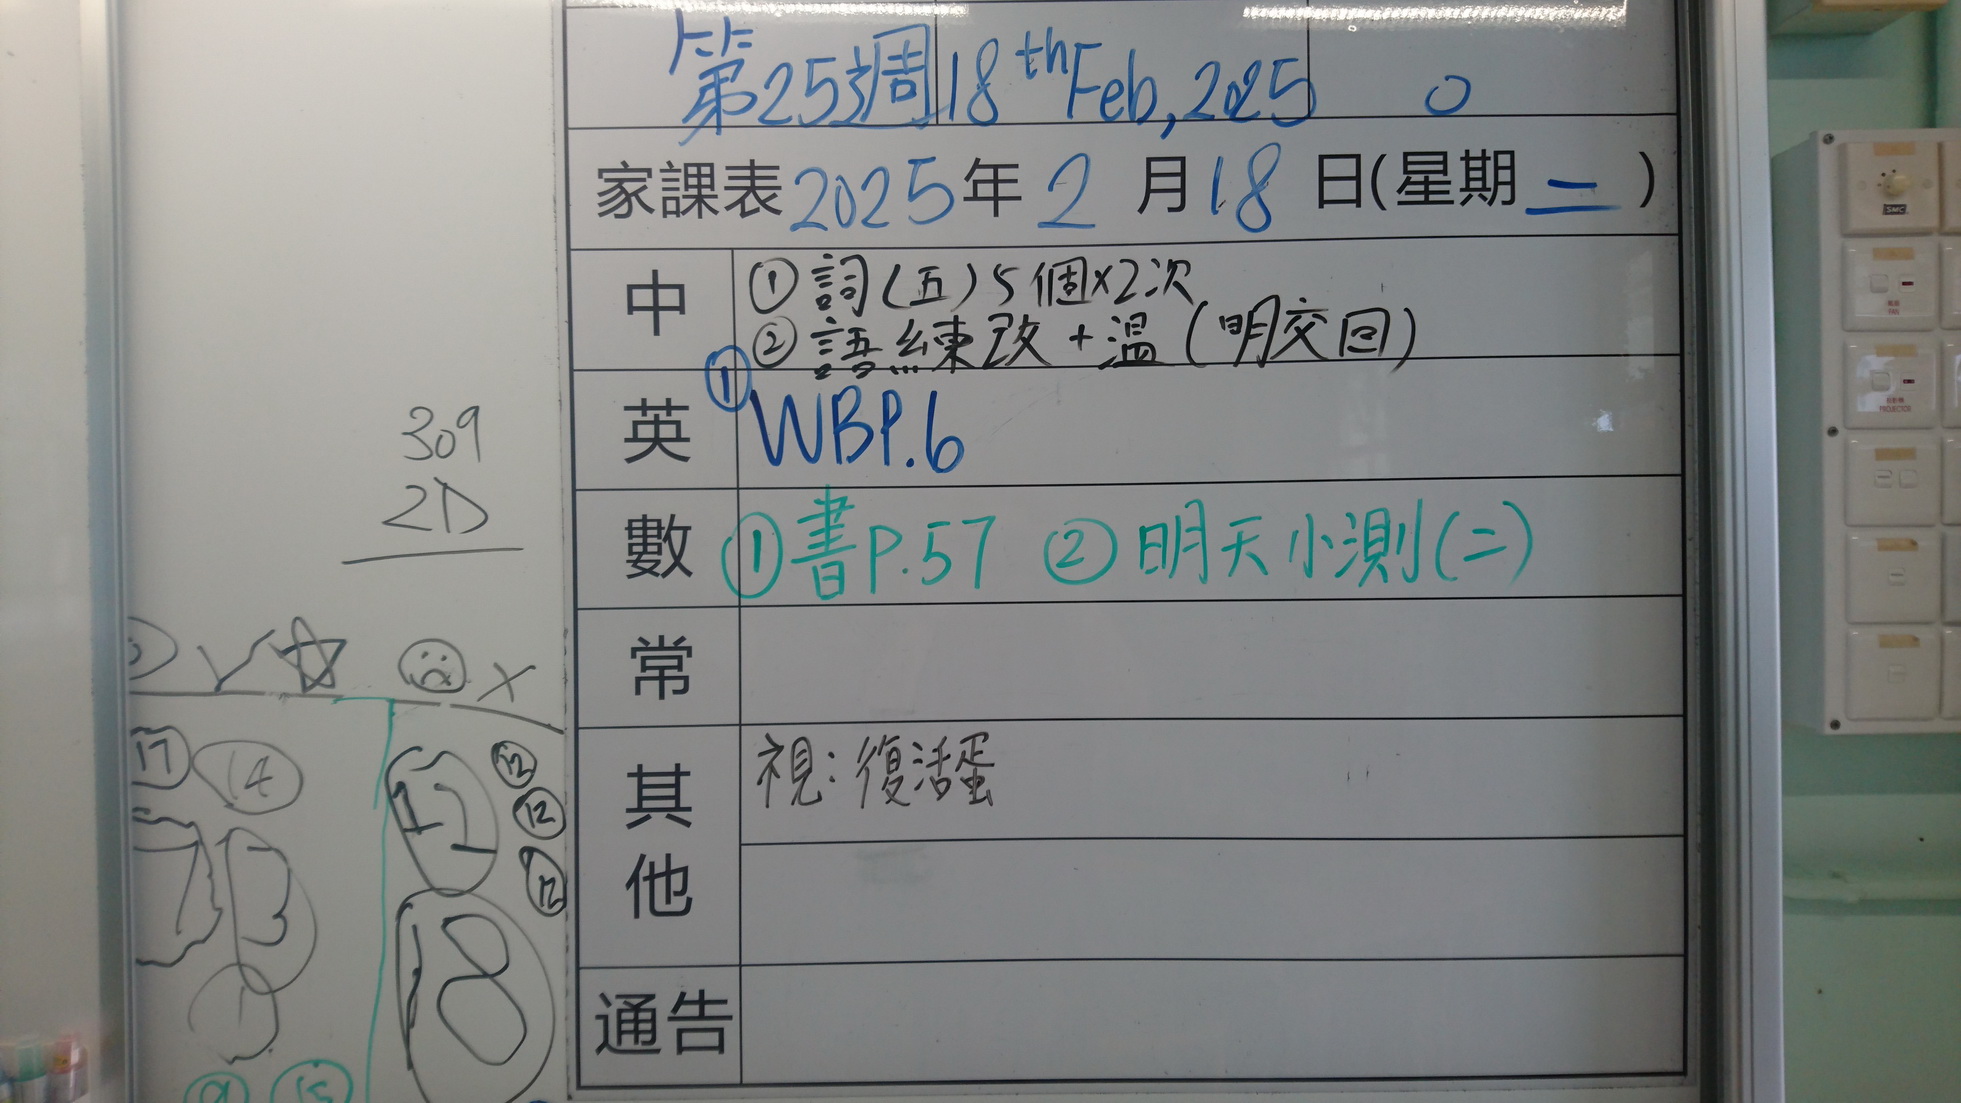 第25週 18th Feb, 2025 0
家課表 2025年 2 月 18 日(星期 二 )
中 ① 詞(五) 5個×2次
② 語練改+温(明交回)
英 ① WBP.6
數 ① 書P.57 ② 明天小測(二)
常
其他 視:復活蛋
通告
309
2D
✓ ☆ ☹ ×
17 14 12 12
12
7 13 12
18
1
15
SMC
FAN
PROJECTOR